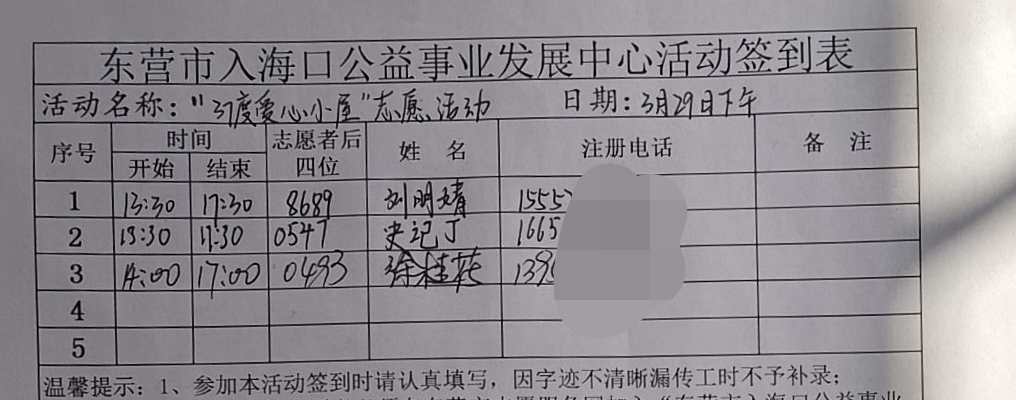 东营市入海口公益事业发展中心活动签到表
活动名称："37度爱心小屋"志愿活动 日期：3月29日下午
序号 时间 志愿者后四位 姓名 注册电话 备注
开始 结束
1 13:30 17:30 8689 刘明婧 1555
2 13:30 17:30 0547 史记丁 1665
3 14:00 17:00 0493 徐桂花 139
4
5
温馨提示：1、参加本活动签到时请认真填写，因字迹不清晰漏传工时不予补录；